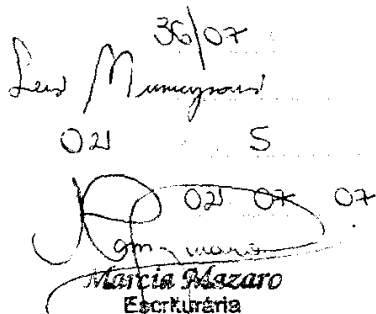 36/07
Leis Municipais
02 S
02 07 07
Marcia Mazaro
Escriturária